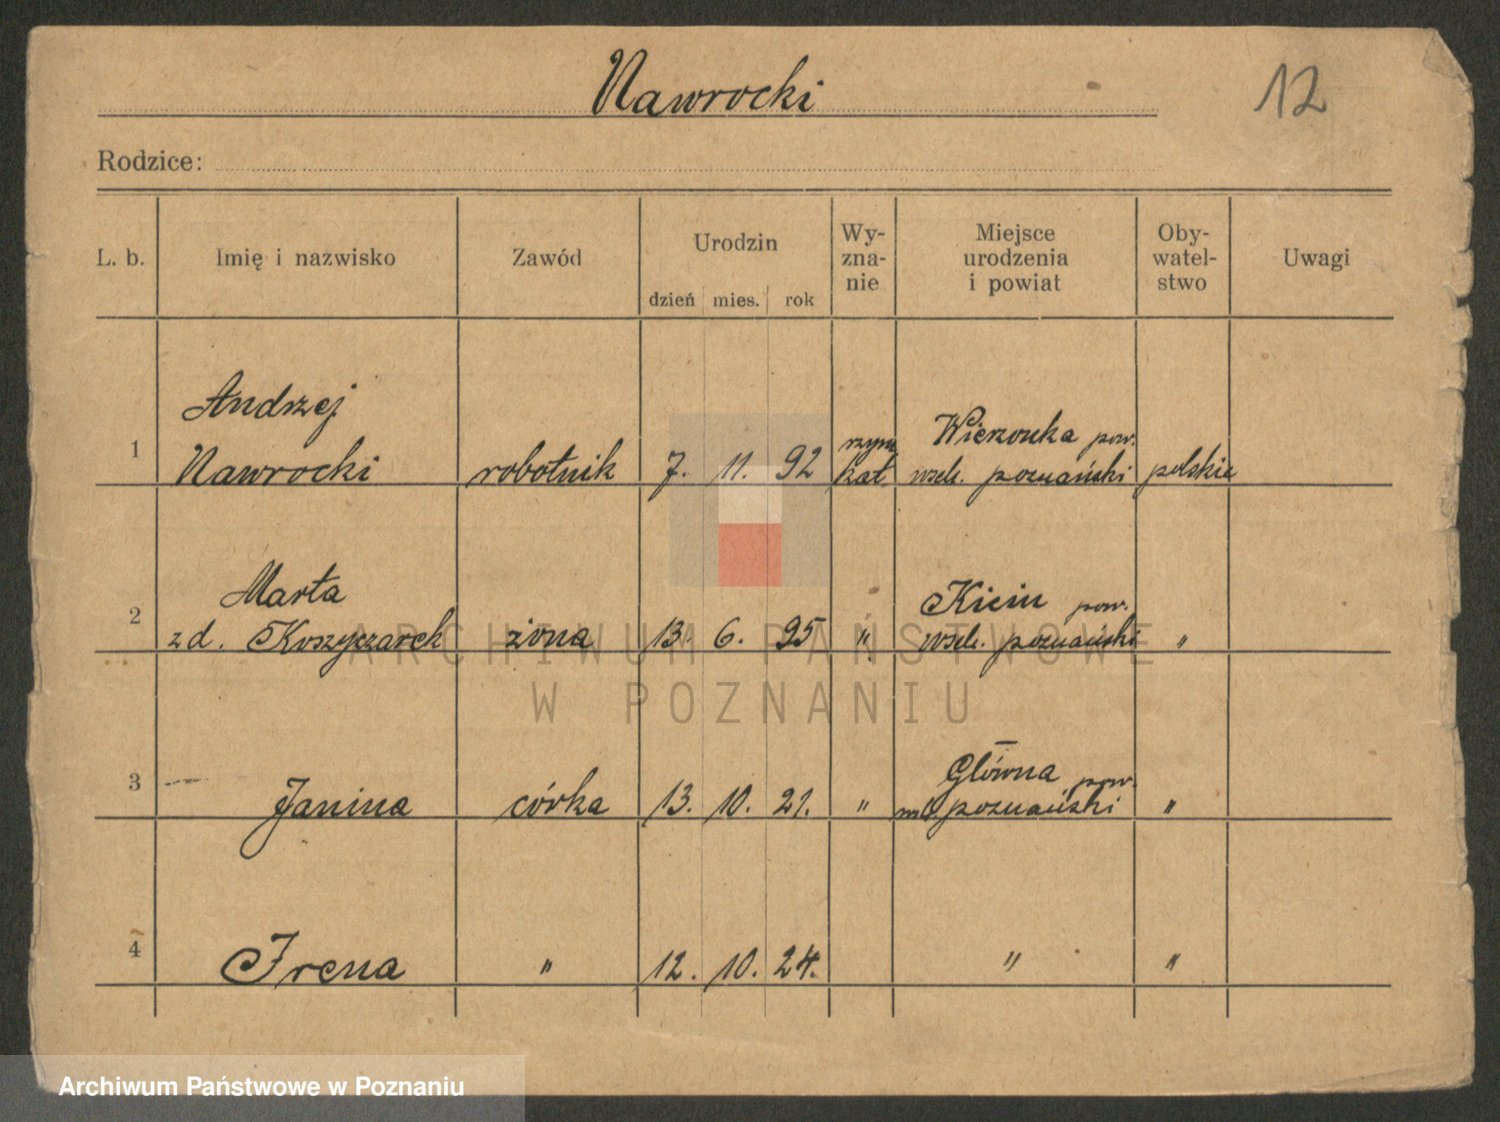 Nawrocki
12
Rodzice:
L. b. Imię i nazwisko Zawód Urodzin dzień mies. rok Wy-zna-nie Miejsce urodzenia i powiat Oby-watel-stwo Uwagi
Andrzej
1 Nawrocki robotnik 7. 11. 92 rzym kat. Wierzonka pow.
wsch. poznański polskie
Marta Kicin pow.
2 zd. Koszyczarek żona 13. 6. 95 " wsch. poznański "
Główna pow.
3 Janina córka 13. 10. 21. " poznański "
4 Irena " 12. 10. 24. " "
ARCHIWUM PAŃSTWOWE
W POZNANIU
Archiwum Państwowe w Poznaniu